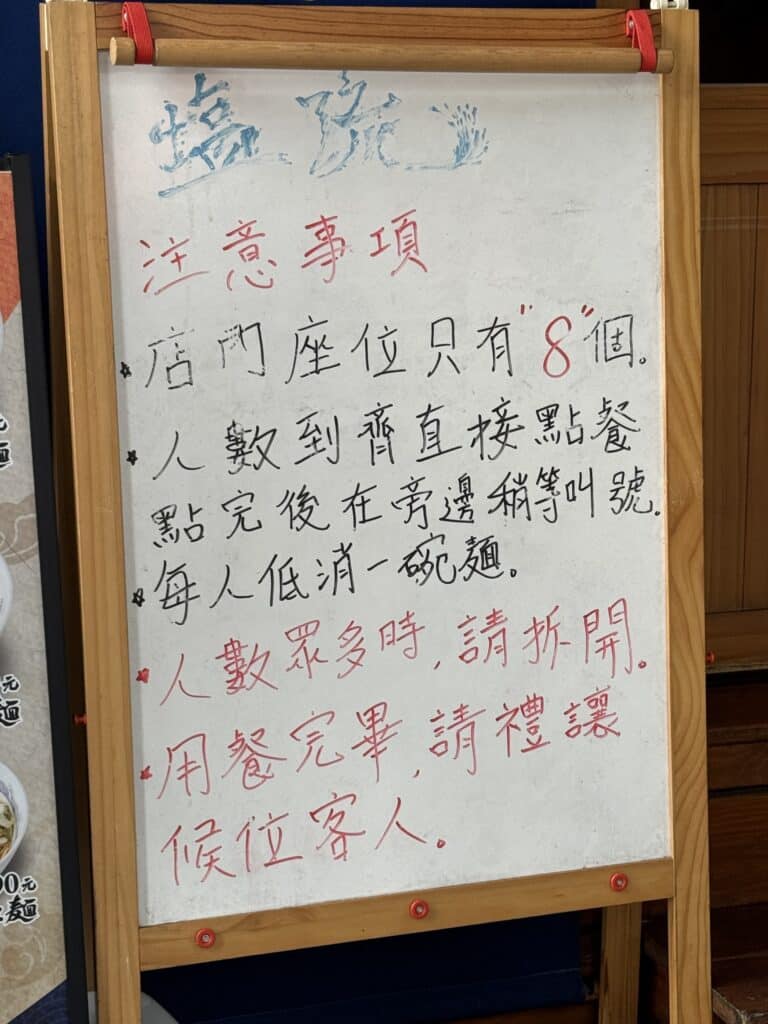 塩琉
注意事項
店門座位只有"8"個。
人數到齊直接點餐
點完後在旁邊稍等叫號.
每人低消一碗麵。
人數眾多時,請拆開。
用餐完畢,請禮讓
候位客人。
元
麵
元
麵
00元
麵